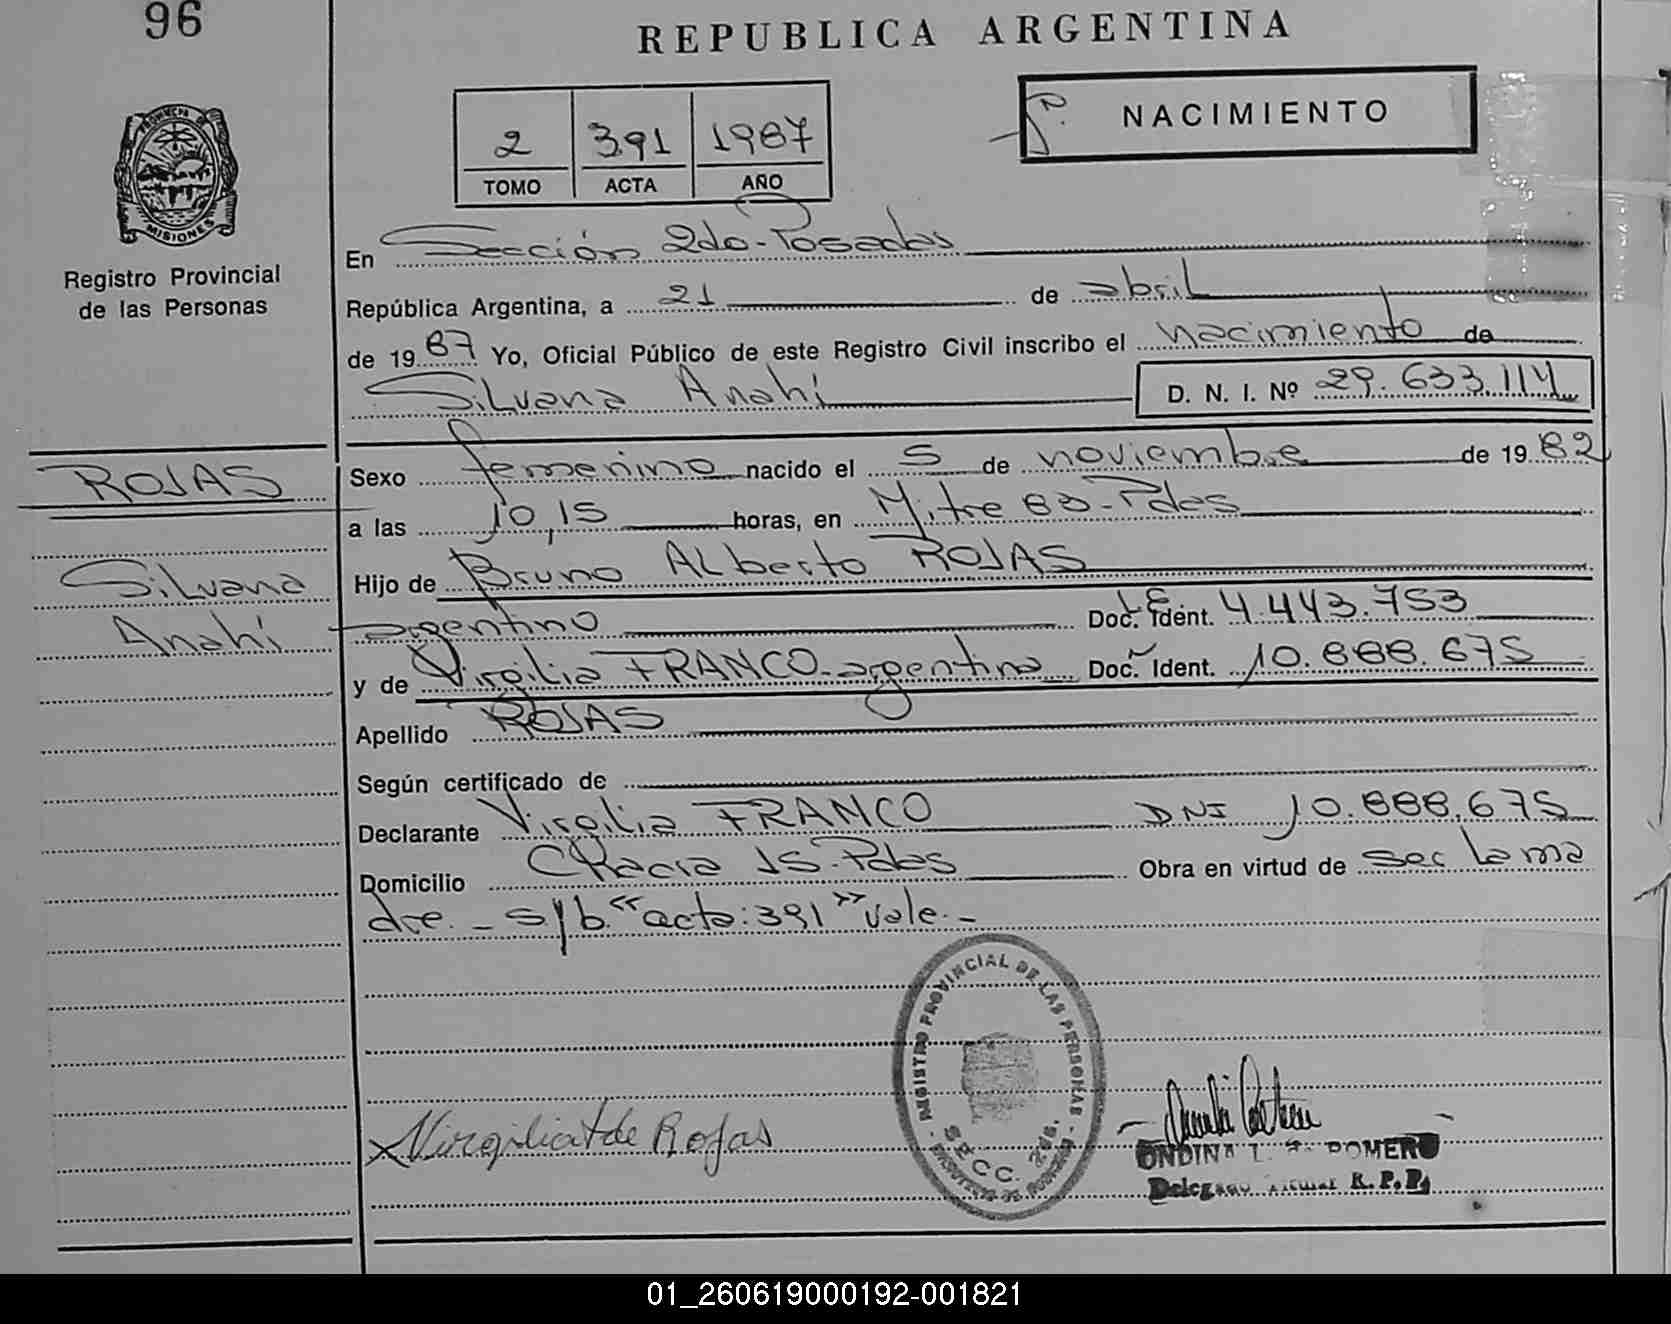 96
REPUBLICA ARGENTINA
2 391 1987
TOMO ACTA AÑO
NACIMIENTO
PROVINCIA DE
MISIONES
Registro Provincial
de las Personas
En Sección 2da-Posadas
República Argentina, a 21 de abril
de 1987 Yo, Oficial Público de este Registro Civil inscribo el nacimiento de
Silvana Anahí D. N. I. Nº 29.633.114
ROJAS
Silvana
Anahí
Sexo femenino nacido el 5 de noviembre de 1982
a las 10,15 horas, en Mitre 80-Pdas
Hijo de Bruno Alberto ROJAS
argentino Doc. Ident. L.E. 4.443.753
y de Virgilia FRANCO-argentina Doc. Ident. 10.888.675
Apellido ROJAS
Según certificado de
Declarante Virgilia FRANCO DNI 10.888.675
Domicilio Chacra 15-Pdas Obra en virtud de ser la ma
dre.- s/b. "acta:391" vale.-
REGISTRO PROVINCIAL DE LAS PERSONAS
SECC. 2da.
Virgilia F de Rojas
ONDINA ROMERO
Delegado Titular R. P. P.
01_260619000192-001821